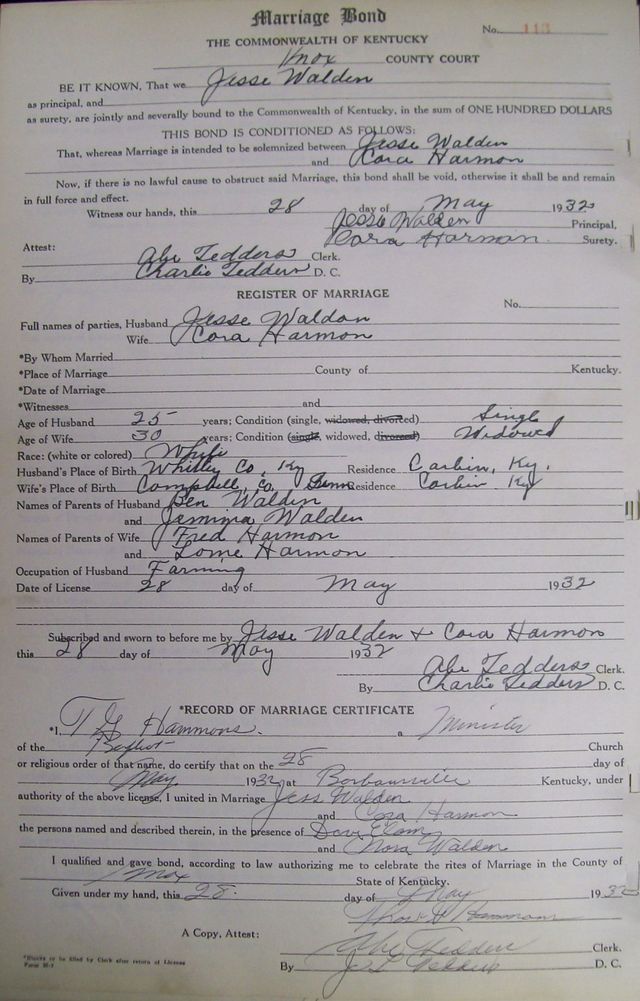 Marriage Bond
No. 113
THE COMMONWEALTH OF KENTUCKY
Knox COUNTY COURT
BE IT KNOWN, That we Jesse Walden
as principal, and
as surety, are jointly and severally bound to the Commonwealth of Kentucky, in the sum of ONE HUNDRED DOLLARS
THIS BOND IS CONDITIONED AS FOLLOWS:
That, whereas Marriage is intended to be solemnized between Jesse Walden
and Cora Harmon
Now, if there is no lawful cause to obstruct said Marriage, this bond shall be void, otherwise it shall be and remain
in full force and effect.
Witness our hands, this 28 day of May 1932
Jesse Walden Principal,
Cora Harmon. Surety.
Attest:
Abe Tedders Clerk.
By Charlie Tedders D. C.
REGISTER OF MARRIAGE
No.
Full names of parties, Husband Jesse Waldon
Wife Cora Harmon
*By Whom Married
*Place of Marriage County of Kentucky.
*Date of Marriage
*Witnesses and
Age of Husband 25 years; Condition (single, widowed, divorced) Single
Age of Wife 30 years; Condition (single, widowed, divorced) Widowed
Race: (white or colored) White
Husband's Place of Birth Whitley Co, Ky Residence Corbin, Ky.
Wife's Place of Birth Campbell, Co, Tenn Residence Corbin Ky
Names of Parents of Husband Ben Walden
and Jemima Walden
Names of Parents of Wife Fred Harmon
and Harmon
Occupation of Husband Farming
Date of License 28 day of May 1932
Subscribed and sworn to before me by Jesse Walden + Cora Harmon
this 28 day of May 1932
Abe Tedders Clerk.
By Charlie Tedders D. C.
*RECORD OF MARRIAGE CERTIFICATE
*I, T G Hammons. a Minister
of the Baptist Church
or religious order of that name, do certify that on the 28 day of
May 1932 at Barbourville Kentucky, under
authority of the above license, I united in Marriage Jess Walden
and Cora Harmon
the persons named and described therein, in the presence of Dave Elam
and Nora Walden
I qualified and gave bond, according to law authorizing me to celebrate the rites of Marriage in the County of
Knox State of Kentucky.
Given under my hand, this 28. day of May 1932
Hammons
A Copy, Attest:
Abe Tedders Clerk.
By Tedders D. C.
*Blanks to be filled by Clerk after return of License